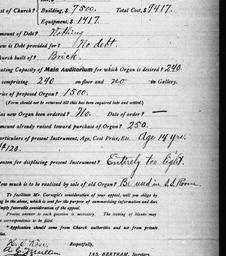 st of Church? Building, $ 7500. Total Cost, $ 9417.
Equipment, $ 1417.
Amount of Debt? Nothing
ow is Debt provided for? No debt.
urch built of? Brick.
ating Capacity of Main Auditorium for which Organ is desired? 240
comprising 240 on floor and no in Gallery.
rice of proposed Organ? 1500.
(Form should not be returned till this has been inquired into and settled.)
as new Organ been ordered? No. Date of order? —
mount already raised toward purchase of Organ? 250.
articulars of present Instrument, Age, Cost Price, Etc. Age 14 yrs.
$120.
eason for displacing present Instrument? Entirely too light.
ow much is to be realized by sale of old Organ? Be used in S.S. Room.
To facilitate Mr. Carnegie's consideration of your appeal, will you oblige by
ing in the above, which is sent for the purpose of summarizing information and does
imply favorable consideration of appeal.
Precise answer to each question is necessary. The evading of blanks may
be corresponded for.
Application should come from Church authorities and not from private
Respectfully,
JAS. BERTRAM, Secretary.